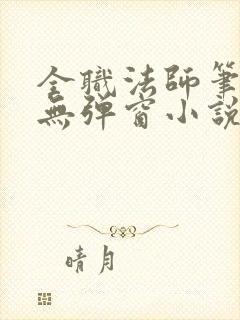 全職法師筆
無彈窗小說
晴月